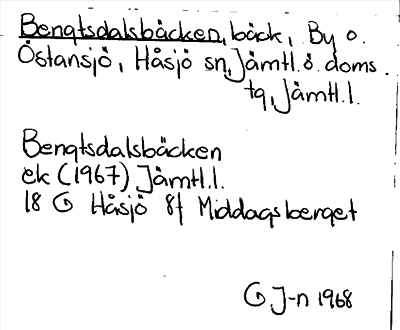 Bengtsdalsbäcken, bäck, By o.
Östansjö, Håsjö sn, Jämtl. ö. doms.
tg, Jämtl. l.
Bengtsdalsbäcken
ek (1967) Jämtl. l.
18 G Håsjö 8f Middagsberget
G J-n 1968